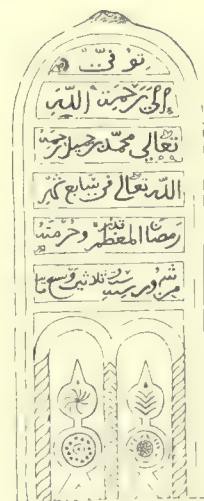 توفي
إلى رحمة الله
تعالى محمد بن جميل رحمة
الله تعالى في سابع شهر
رمضان المعظم قدره وحرمته
من شهور سنة ثلاثين وتسع